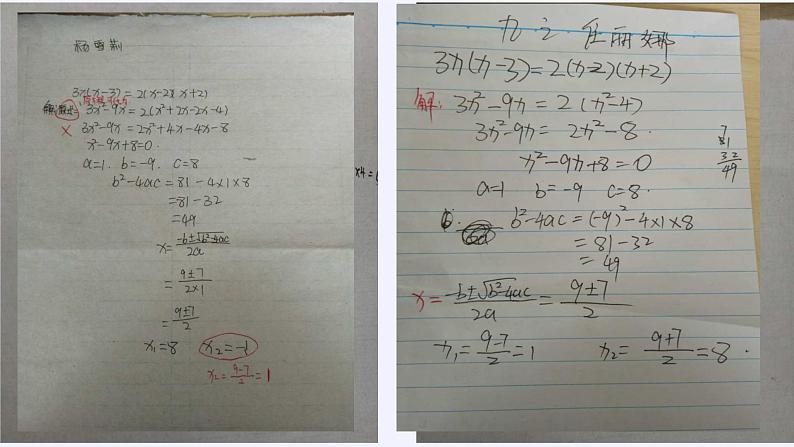 杨雪莉
3x(x-3)=2(x-2)(x+2)
3x²-9x=2(x²+2x-2x-4)
× 3x²-9x=2x²+4x-4x-8
x²-9x+8=0.
a=1. b=-9. c=8
b²-4ac=81-4×1×8
=81-32
=49
x=\frac{-b±\sqrt{b²-4ac}}{2a}
=\frac{9±7}{2×1}
=\frac{9±7}{2}
x₁=8 x₂=-1
x₂=\frac{9-7}{2}=1
x4=
九.2 任丽娜
3x(x-3)=2(x-2)(x+2)
解: 3x²-9x=2(x²-4)
3x²-9x=2x²-8.
x²-9x+8=0
a=1 b=-9 c=8.
b²-4ac=(-9)²-4×1×8
=81-32
=49
32
49
x=\frac{-b±\sqrt{b²-4ac}}{2a}=\frac{9±7}{2}
x₁=\frac{9-7}{2}=1 x₂=\frac{9+7}{2}=8.